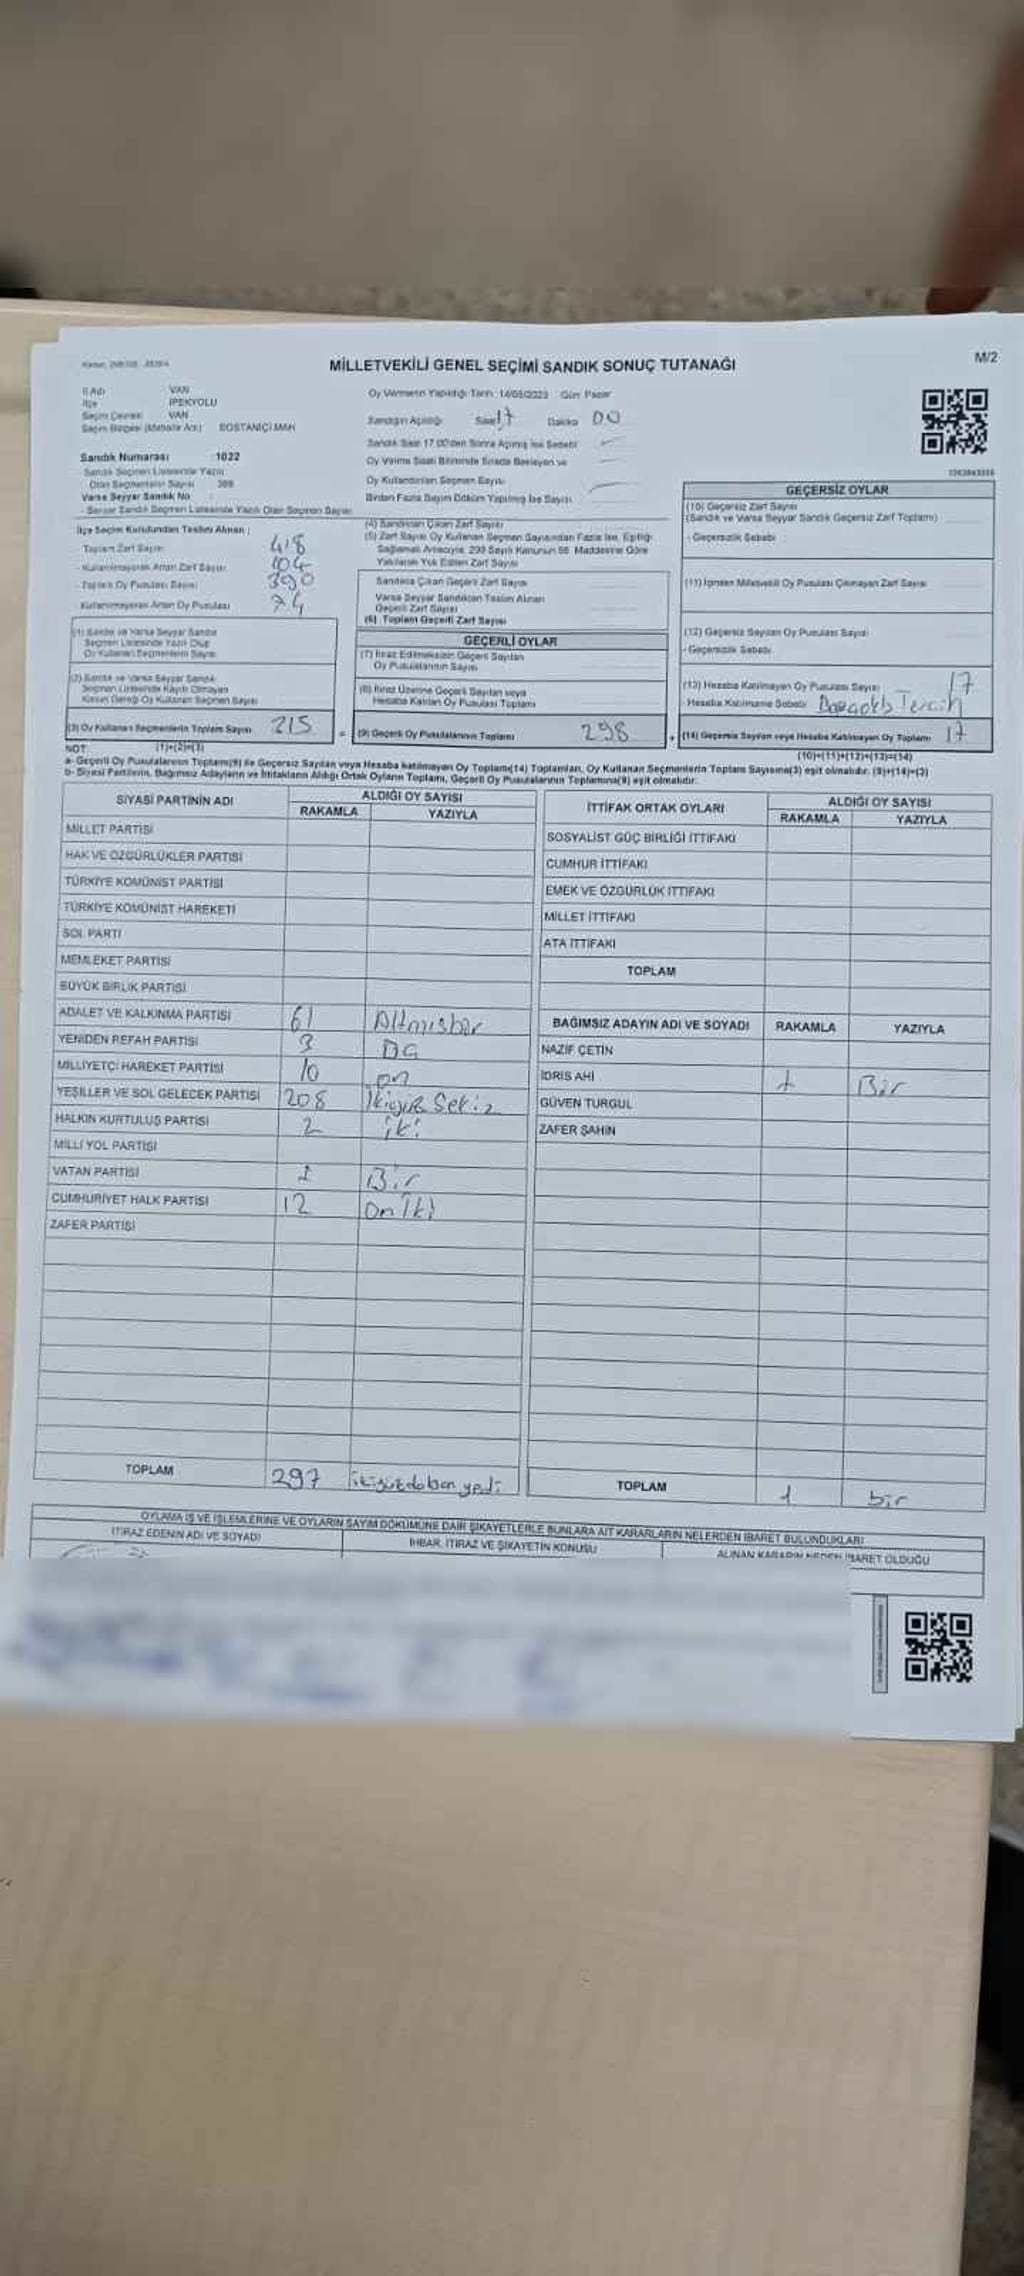 MİLLETVEKİLİ GENEL SEÇİMİ SANDIK SONUÇ TUTANAĞI
M/2
İl Adı VAN
İlçe İPEKYOLU
Seçim Çevresi VAN
Seçim Bölgesi (Mahalle Adı) BOSTANİÇİ MAH
Sandık Numarası :1022
Sandık Seçmen Listesinde Yazılı
Olan Seçmenlerin Sayısı
Varsa Seyyar Sandık No :
- Seyyar Sandık Seçmen Listesinde Yazılı Olan Seçmen Sayısı
Oy Vermenin Yapıldığı Tarih: 14/05/2023 Gün: Pazar
Sandığın Açıldığı Saat 17 Dakika 00
Sandık Saat 17.00'den Sonra Açılmış İse Sebebi
Oy Verme Saati Bitiminde Sırada Bekleyen ve
Oy Kullandırılan Seçmen Sayısı
Birden Fazla Sayım Döküm Yapılmış İse Sayısı
İlçe Seçim Kurulundan Teslim Alınan ;
Toplam Zarf Sayısı 418
- Kullanılmayarak Artan Zarf Sayısı 104
- Toplam Oy Pusulası Sayısı 390
- Kullanılmayarak Artan Oy Pusulası 74
(1) Sandık ve Varsa Seyyar Sandık
Seçmen Listesinde Yazılı Olup
Oy Kullanan Seçmenlerin Sayısı
(2) Sandık ve Varsa Seyyar Sandık
Seçmen Listesinde Kayıtlı Olmayan
Kanun Gereği Oy Kullanan Seçmen Sayısı
(3) Oy Kullanan Seçmenlerin Toplam Sayısı 315
(4) Sandıktan Çıkan Zarf Sayısı
(5) Zarf Sayısı Oy Kullanan Seçmen Sayısından Fazla İse, Eşitliği
Sağlamak Amacıyla, 298 Sayılı Kanunun 98. Maddesine Göre
Yakılarak Yok Edilen Zarf Sayısı
Sandıkta Çıkan Geçerli Zarf Sayısı
Varsa Seyyar Sandıktan Teslim Alınan
Geçerli Zarf Sayısı
(6) Toplam Geçerli Zarf Sayısı
GEÇERLİ OYLAR
(7) İtiraz Edilmeksizin Geçerli Sayılan
Oy Pusulalarının Sayısı
(8) İtiraz Üzerine Geçerli Sayılan veya
Hesaba Katılan Oy Pusulası Toplamı
= (9) Geçerli Oy Pusulalarının Toplamı 298
GEÇERSİZ OYLAR
(10) Geçersiz Zarf Sayısı
(Sandık ve Varsa Seyyar Sandık Geçersiz Zarf Toplamı)
- Geçersizlik Sebebi
(11) İçinden Milletvekili Oy Pusulası Çıkmayan Zarf Sayısı
(12) Geçersiz Sayılan Oy Pusulası Sayısı
- Geçersizlik Sebebi
(13) Hesaba Katılmayan Oy Pusulası Sayısı 17
- Hesaba Katılmama Sebebi
+ (14) Geçersiz Sayılan veya Hesaba Katılmayan Oy Toplamı 17
NOT: (1)+(2)=(3)
(10)+(11)+(12)+(13)=(14)
a- Geçerli Oy Pusulalarının Toplamı(9) ile Geçersiz Sayılan veya Hesaba katılmayan Oy Toplamı(14) Toplamları, Oy Kullanan Seçmenlerin Toplam Sayısına(3) eşit olmalıdır. (9)+(14)=(3)
b- Siyasi Partilerin, Bağımsız Adayların ve İttifakların Aldığı Ortak Oyların Toplamı, Geçerli Oy Pusulalarının Toplamına(9) eşit olmalıdır.
SİYASİ PARTİNİN ADI ALDIĞI OY SAYISI
RAKAMLA YAZIYLA
MİLLET PARTİSİ
HAK VE ÖZGÜRLÜKLER PARTİSİ
TÜRKİYE KOMÜNİST PARTİSİ
TÜRKİYE KOMÜNİST HAREKETİ
SOL PARTİ
MEMLEKET PARTİSİ
BÜYÜK BİRLİK PARTİSİ
ADALET VE KALKINMA PARTİSİ 61 Altmışbir
YENİDEN REFAH PARTİSİ 3
MİLLİYETÇİ HAREKET PARTİSİ 10 on
YEŞİLLER VE SOL GELECEK PARTİSİ 208 İkiyüz Sekiz
HALKIN KURTULUŞ PARTİSİ 2 iki
MİLLİ YOL PARTİSİ
VATAN PARTİSİ 1 Bir
CUMHURİYET HALK PARTİSİ 12 on İki
ZAFER PARTİSİ
TOPLAM 297 ikiyüzdoksanyedi
İTTİFAK ORTAK OYLARI ALDIĞI OY SAYISI
RAKAMLA YAZIYLA
SOSYALİST GÜÇ BİRLİĞİ İTTİFAKI
CUMHUR İTTİFAKI
EMEK VE ÖZGÜRLÜK İTTİFAKI
MİLLET İTTİFAKI
ATA İTTİFAKI
TOPLAM
BAĞIMSIZ ADAYIN ADI VE SOYADI RAKAMLA YAZIYLA
NAZİF ÇETİN
İDRİS AHİ 1 Bir
GÜVEN TURGUL
ZAFER ŞAHİN
TOPLAM 1 bir
OYLAMA İŞ VE İŞLEMLERİNE VE OYLARIN SAYIM DÖKÜMÜNE DAİR ŞİKAYETLERLE BUNLARA AİT KARARLARIN NELERDEN İBARET BULUNDUKLARI
İTİRAZ EDENİN ADI VE SOYADI İHBAR, İTİRAZ VE ŞİKAYETİN KONUSU ALINAN KARARIN NEDEN İBARET OLDUĞU